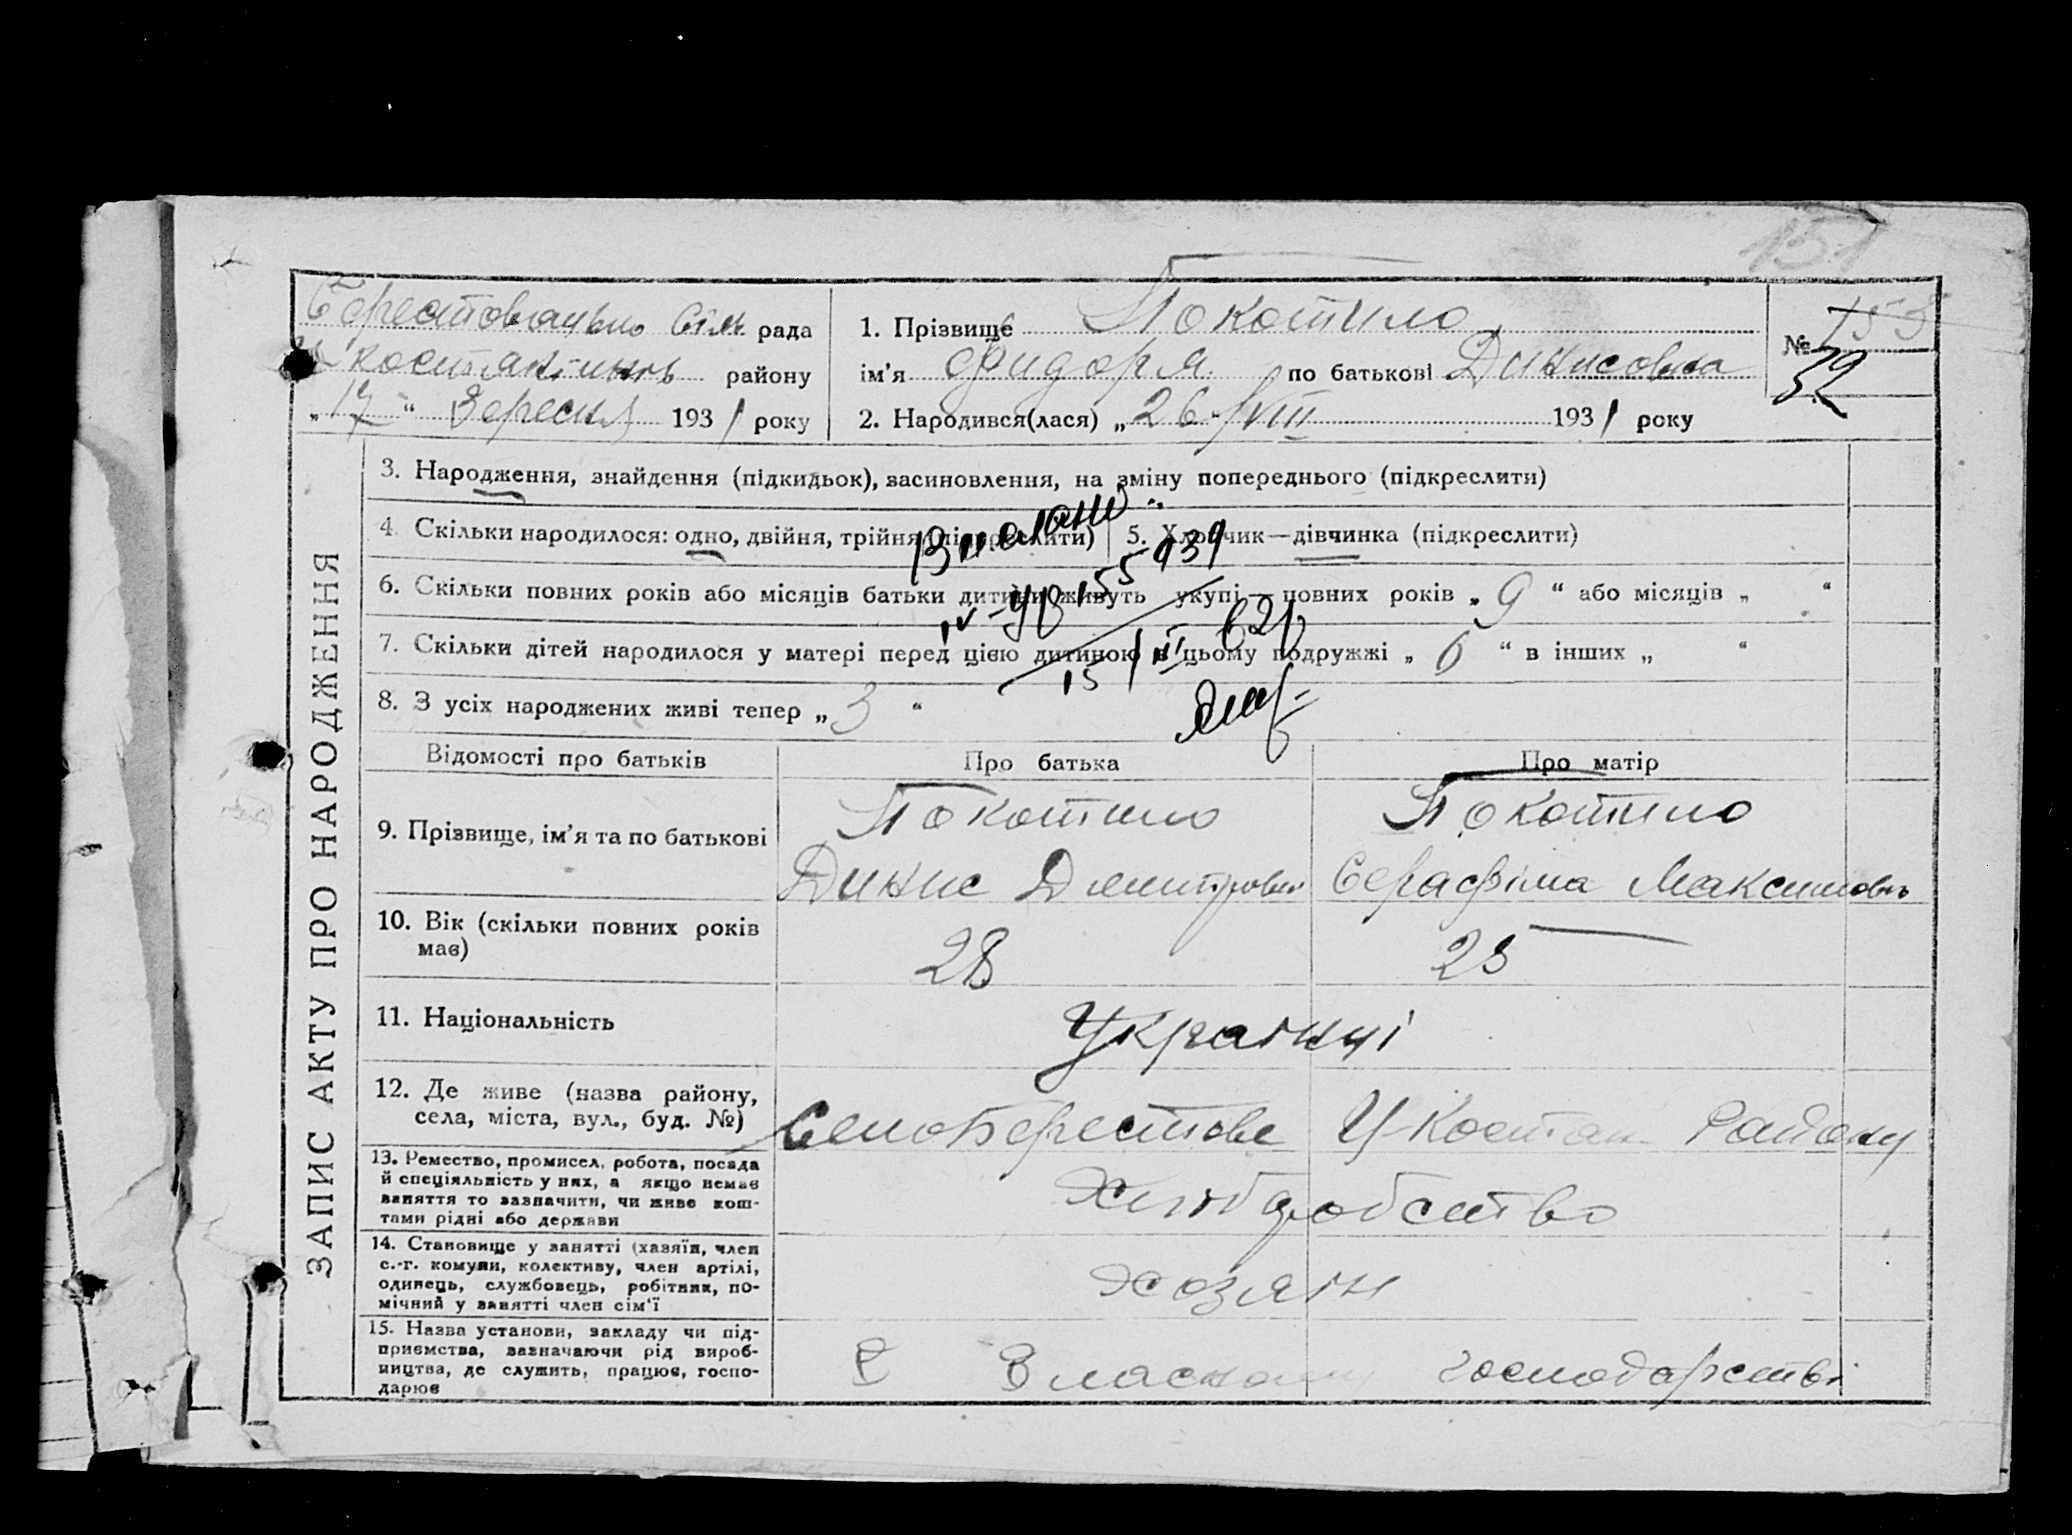 151
Берестовацько Сіль. рада
Костянтинів району
„17“ Вересня 1931 року
1. Прізвище Покотило
ім’я Фидоря по батькові Динисовна
2. Народився(лася) „26/VIII 1931 року
№ 153
32
ЗАПИС АКТУ ПРО НАРОДЖЕННЯ
3. Народження, знайдення (підкидьок), засиновлення, на зміну попереднього (підкреслити)
4. Скільки народилося: одно, двійня, трійня (підкреслити)
5. Хлопчик—дівчинка (підкреслити)
6. Скільки повних років або місяців батьки дитини живуть укупі—повних років „9“ або місяців „ “
7. Скільки дітей народилося у матері перед цією дитиною в цьому подружжі „6“ в інших „ “
8. З усіх народжених живі тепер „3“
Відомості про батьків
Про батька
Про матір
9. Прізвище, ім’я та по батькові
Покотило
Динис Дмитрович
Покотило
Серафіма Максимовн
10. Вік (скільки повних років має)
28
25
11. Національність
Українці
12. Де живе (назва району, села, міста, вул., буд. №)
Село Берестове У-Костян Району
13. Ремество, промисел, робота, посада
й спеціяльність у них, а якщо немає
заняття то зазначити, чи живе кош-
тами рідні або держави
Хлібробство
14. Становище у занятті (хазяїн, член
с.-г. комуни, колективу, член артілі,
одинець, службовець, робітник, по-
мічний у занятті член сім’ї
Хозяїн
15. Назва установи, закладу чи під-
приємства, зазначаючи рід вироб-
ництва, де служить, працює, госпо-
дарює
В Власному господарстві